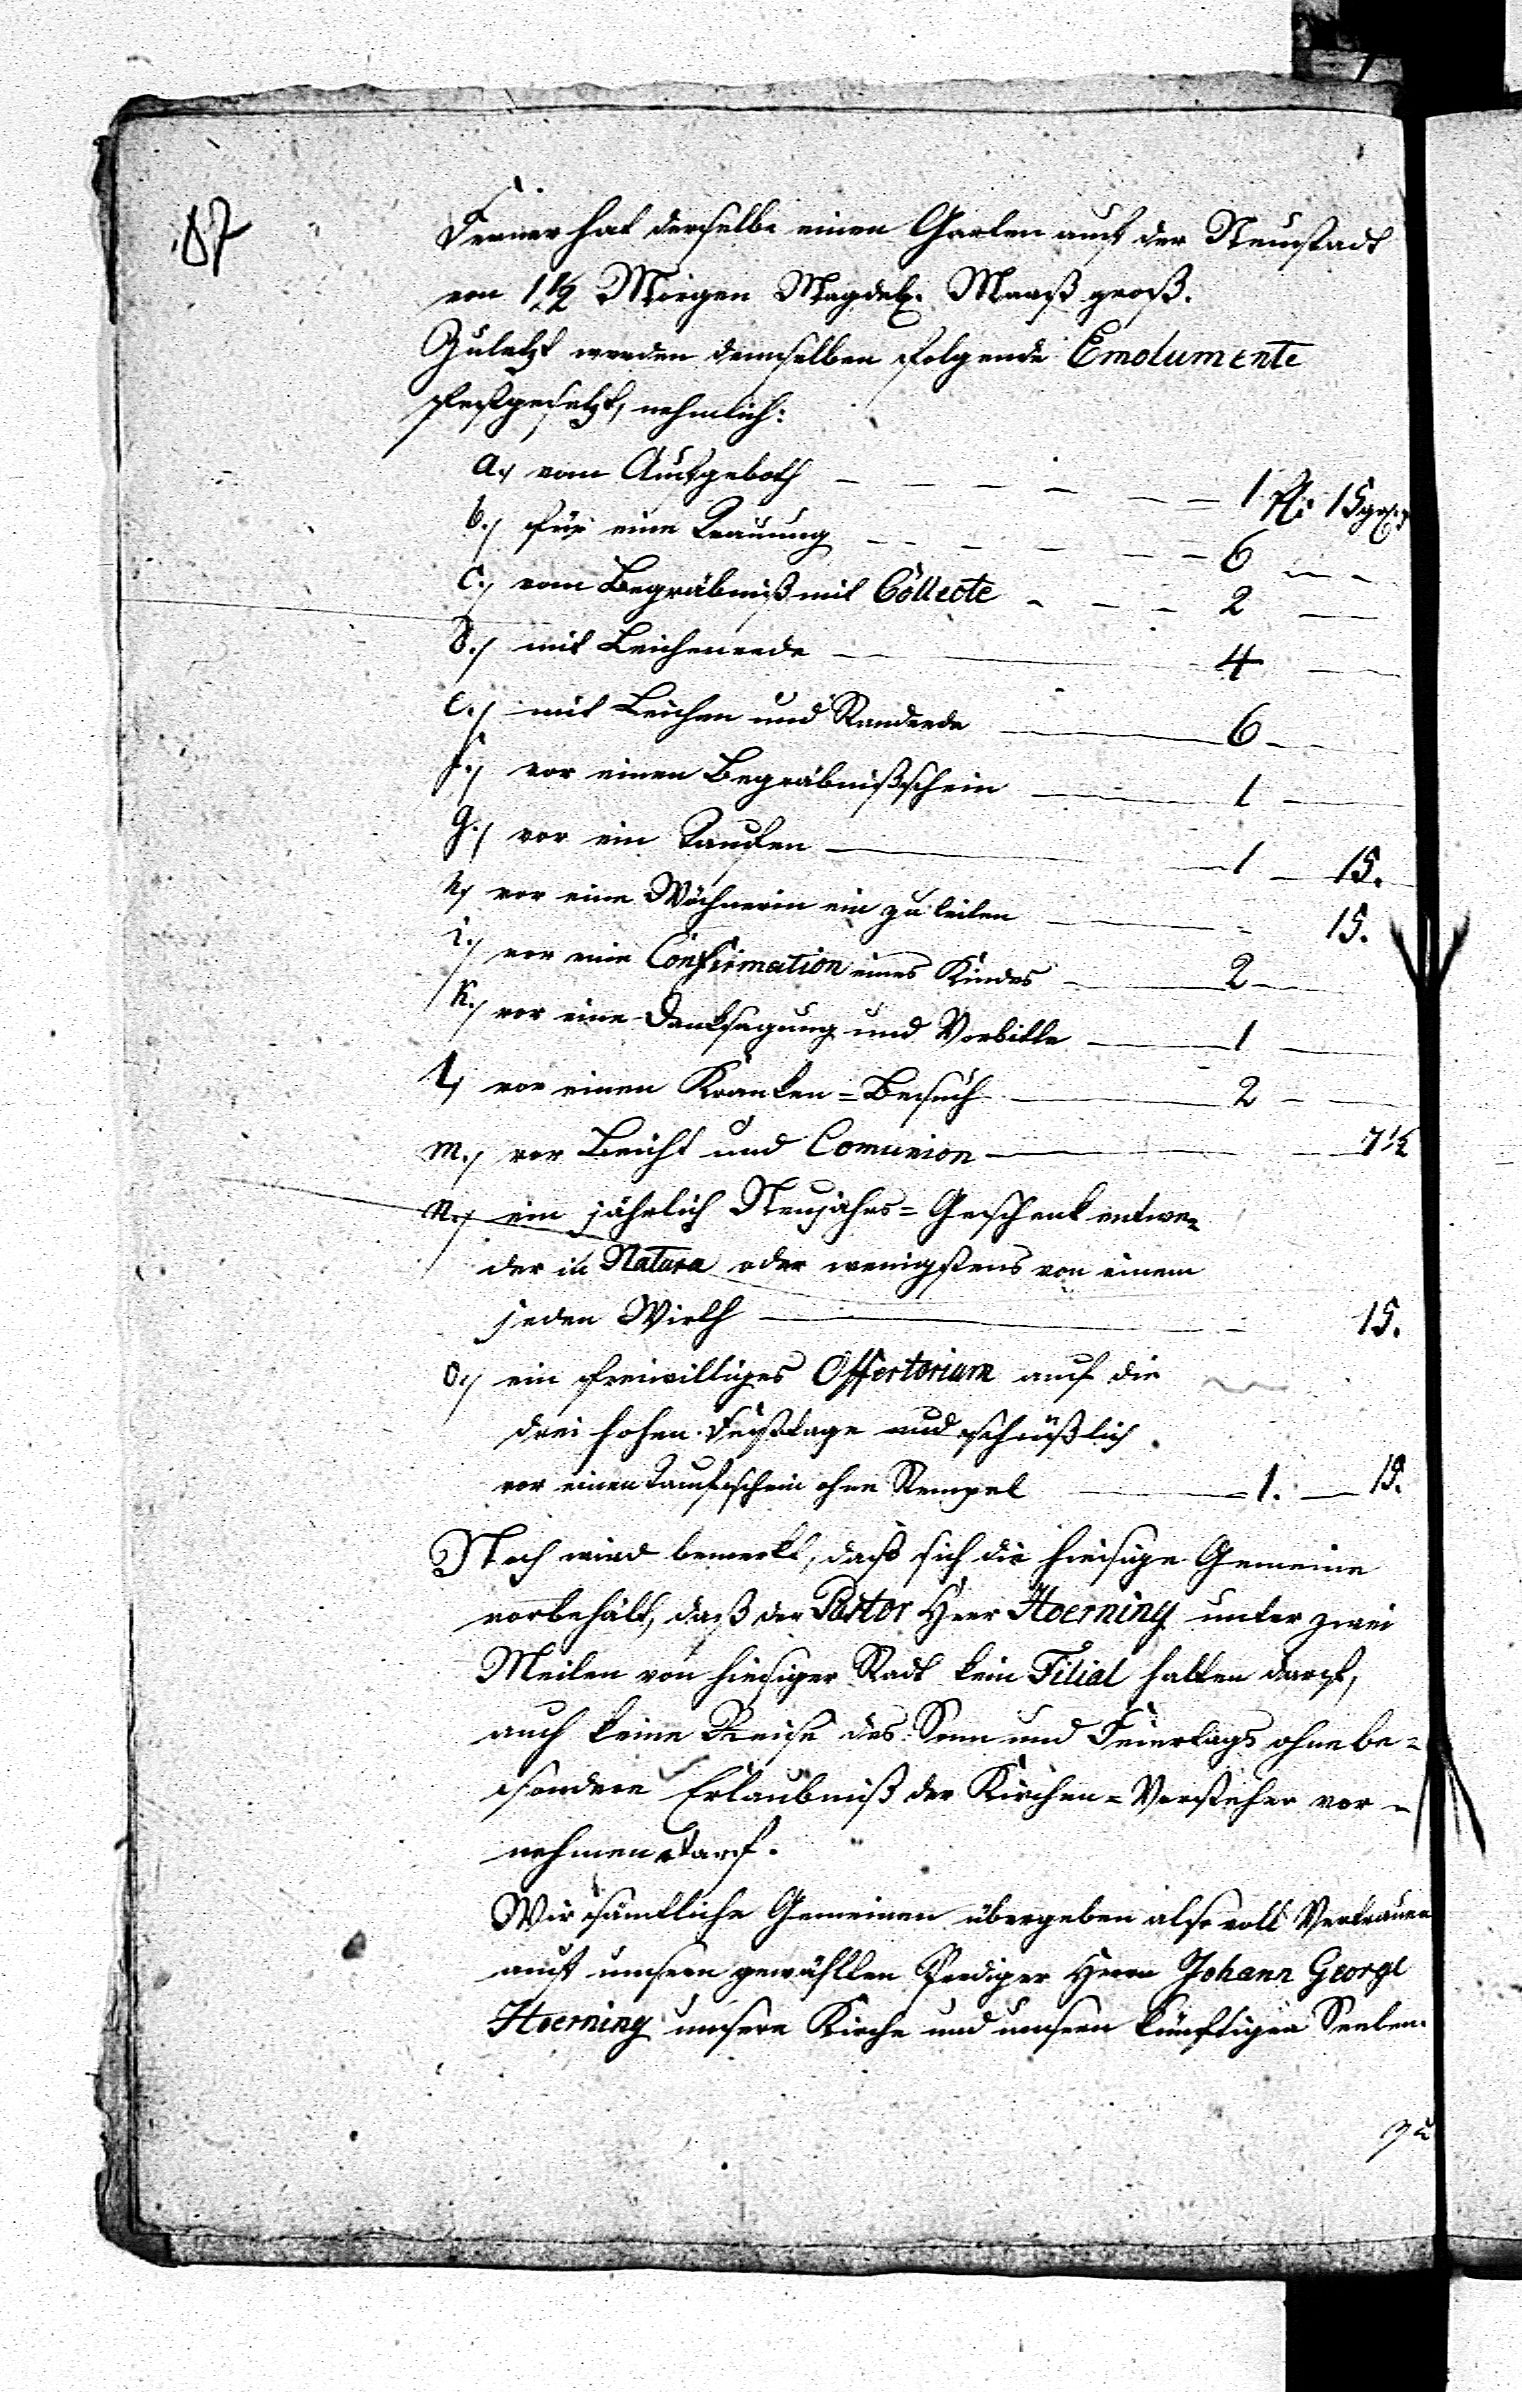 87
Ferner hat derselbe einen Garten auf der Neustadt
von 1 1/2 Morgen Magdeb. Maaß groß.
Zuletzt werden demselben folgende Emolumente
festgesetzt, nehmlich:
a.) vom Aufgeboth — 1 fl: 15 gr
b.) für eine Trauung — 6 —
c.) vom Begräbniß mit Collecte — 2 —
d.) mit Leichenrede — 4 —
e.) mit Leichen und Standrede — 6 —
f.) vor einen Begräbnißschein — 1 —
g.) vor ein Taufen — 1 — 15.
h.) vor eine Wöchnerin ein zu leiten — 15.
i.) vor eine Confirmation eines Kindes — 2 —
k.) vor eine Danksagung und Vorbitte — 1 —
l.) vor einen Kranken-Besuch — 2 —
m.) vor Beicht und Comunion — 7 1/2
n.) ein jährlich Neujahrs-Geschenk entwe-
der in Natura oder wenigstens von einem
jeden Wirth — 15.
o.) ein freiwilliges Offertorium auf die
drei hohen Festtage und schlüßlich
vor einen Taufschein ohne Stempel — 1. — 15.
Noch wird bemerkt, daß sich die hiesige Gemeine
vorbehält, daß der Pastor Herr Hoerning unter zwei
Meilen von hiesiger Stadt kein Filial halten darf,
auch keine Reise des Sonn und Feiertags ohne be-
sondere Erlaubniß der Kirchen-Vorsteher vor-
nehmen darf.
Wir sämtliche Gemeinen übergeben also voll Vertrauen
auf unsern gewählten Prediger Herrn Johann George
Hoerning unsere Kirche und unsern künftigen Seelen-